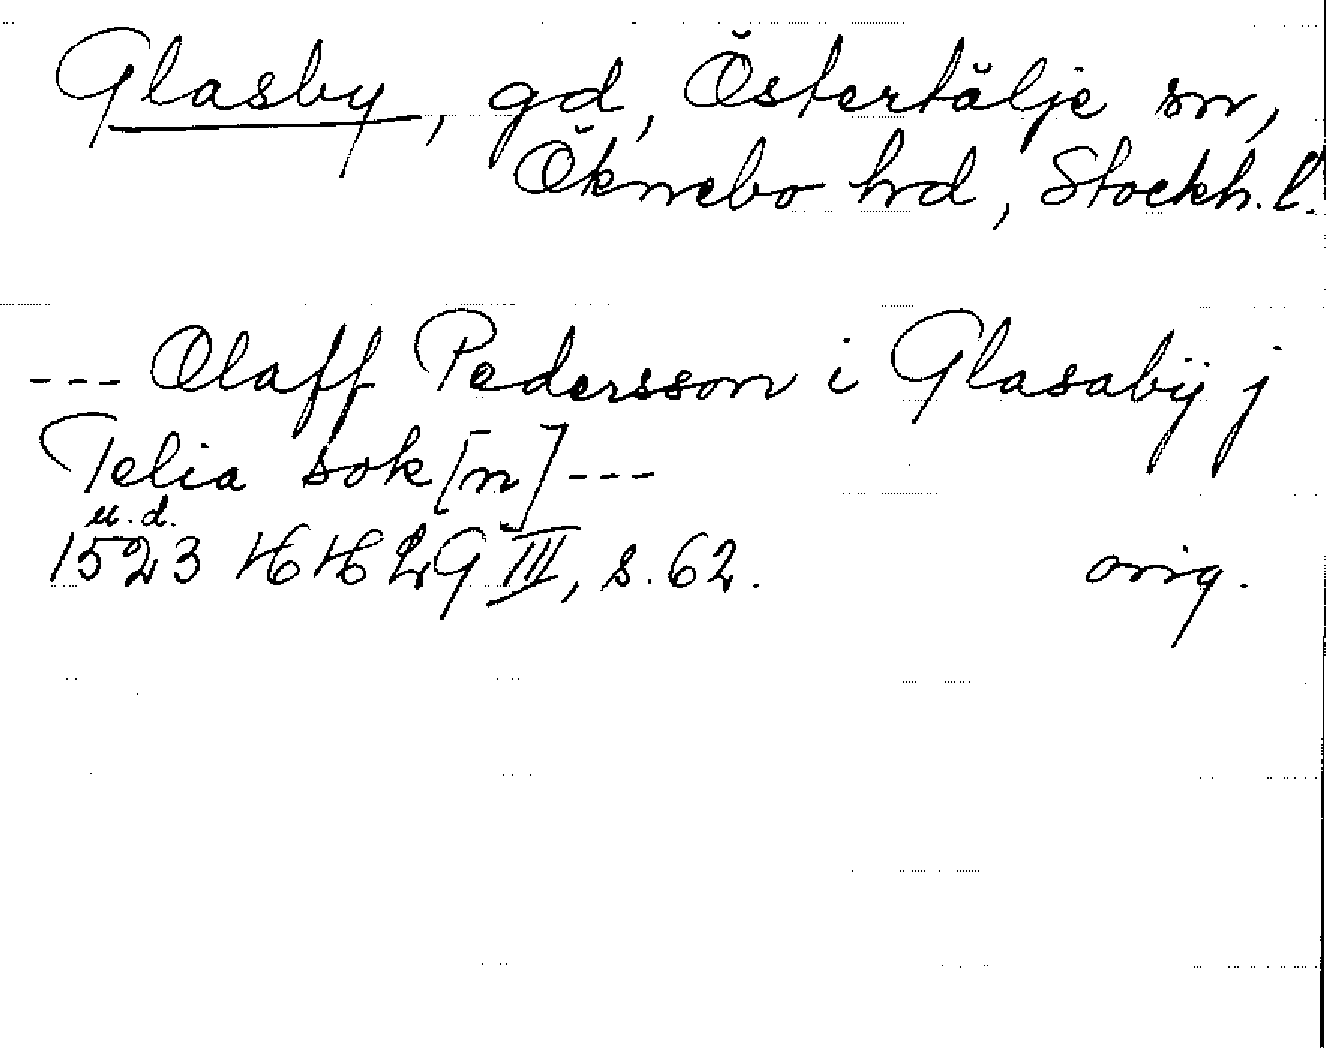 Glasby, gd, Östertälje sn,
Öknebo hrd, Stockh. l.
--- Olaff Pedersson i Glasabÿ j
Telia sok[n] ---
u.d.
1523 HH 29 III, s. 62. orig.